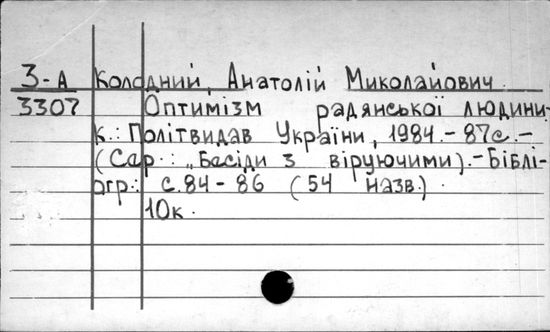 3-А Колодний, Анатолій Миколайович.
3307 Оптимізм радянської людини.
К.: Політвидав України, 1984.- 87с.-
(Сар.: „Бесіди з віруючими).-Біблі-
огр.: с.84-86 (54 назв.)
10к.